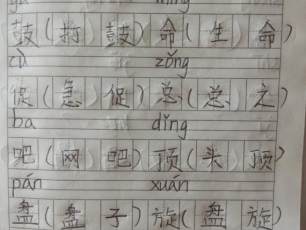 鼓(打鼓)命(生命)
cù zǒng
促(急促)总(总之)
ba dǐng
吧(网吧)顶(头顶)
pán xuán
盘(盘子)旋(盘旋)